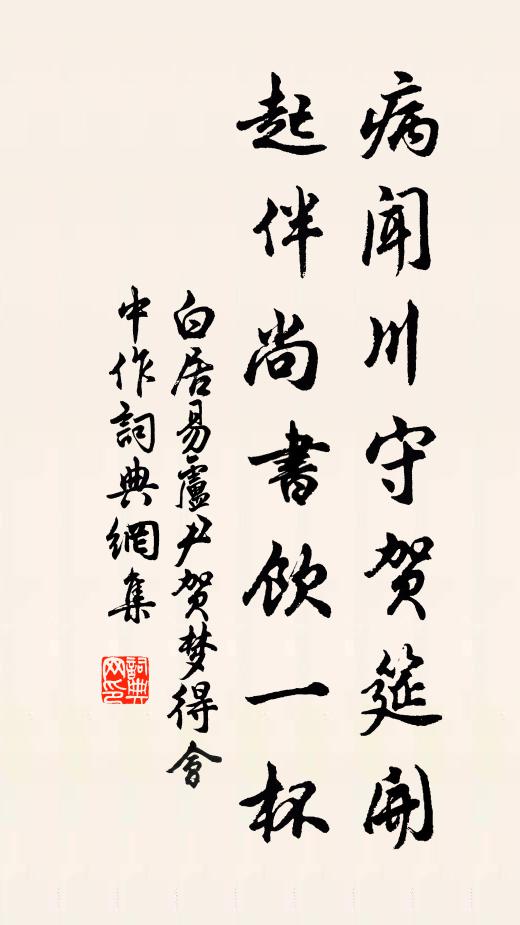 病闻川守贺筵開
起伴尚書飲一杯
白居易盧尹贺梦得會
中作詞典網集
詞典网印